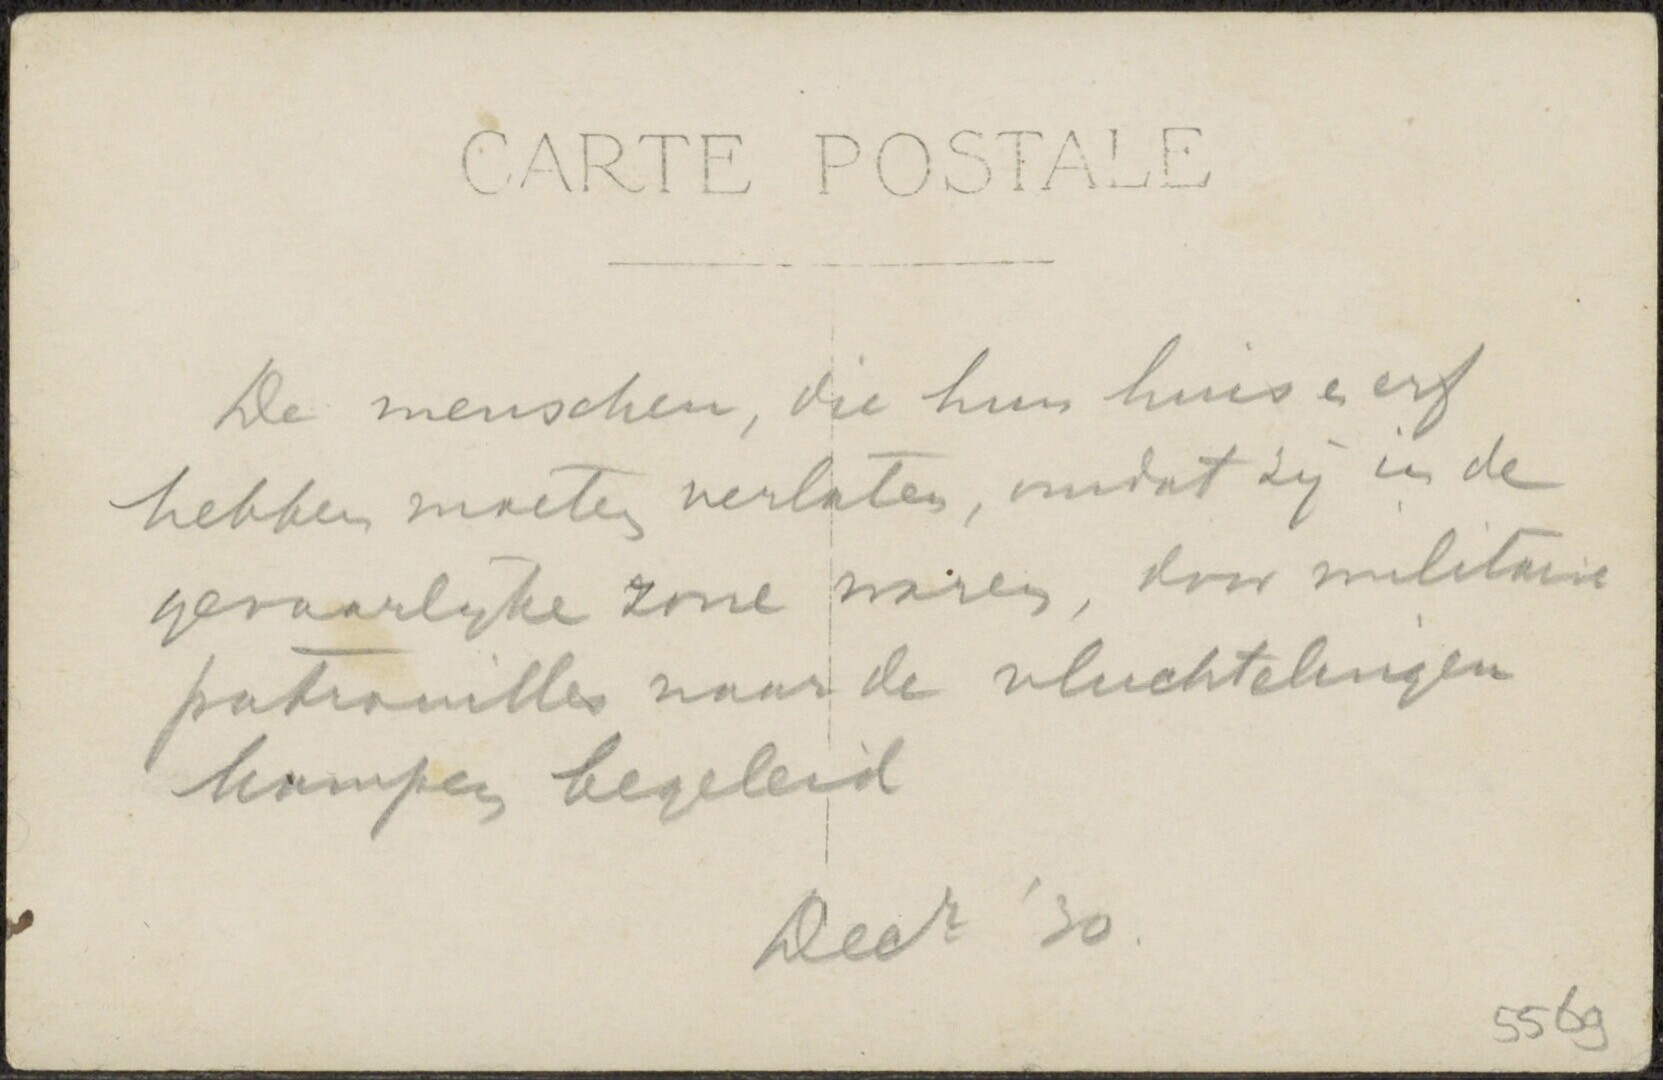 CARTE POSTALE
De menschen, die hun huis en erf
hebben moeten verlaten, omdat zij in de
gevaarlijke zone waren, door militaire
patrouilles naar de vluchtelingen
kampen begeleid
Decr '30.
5569